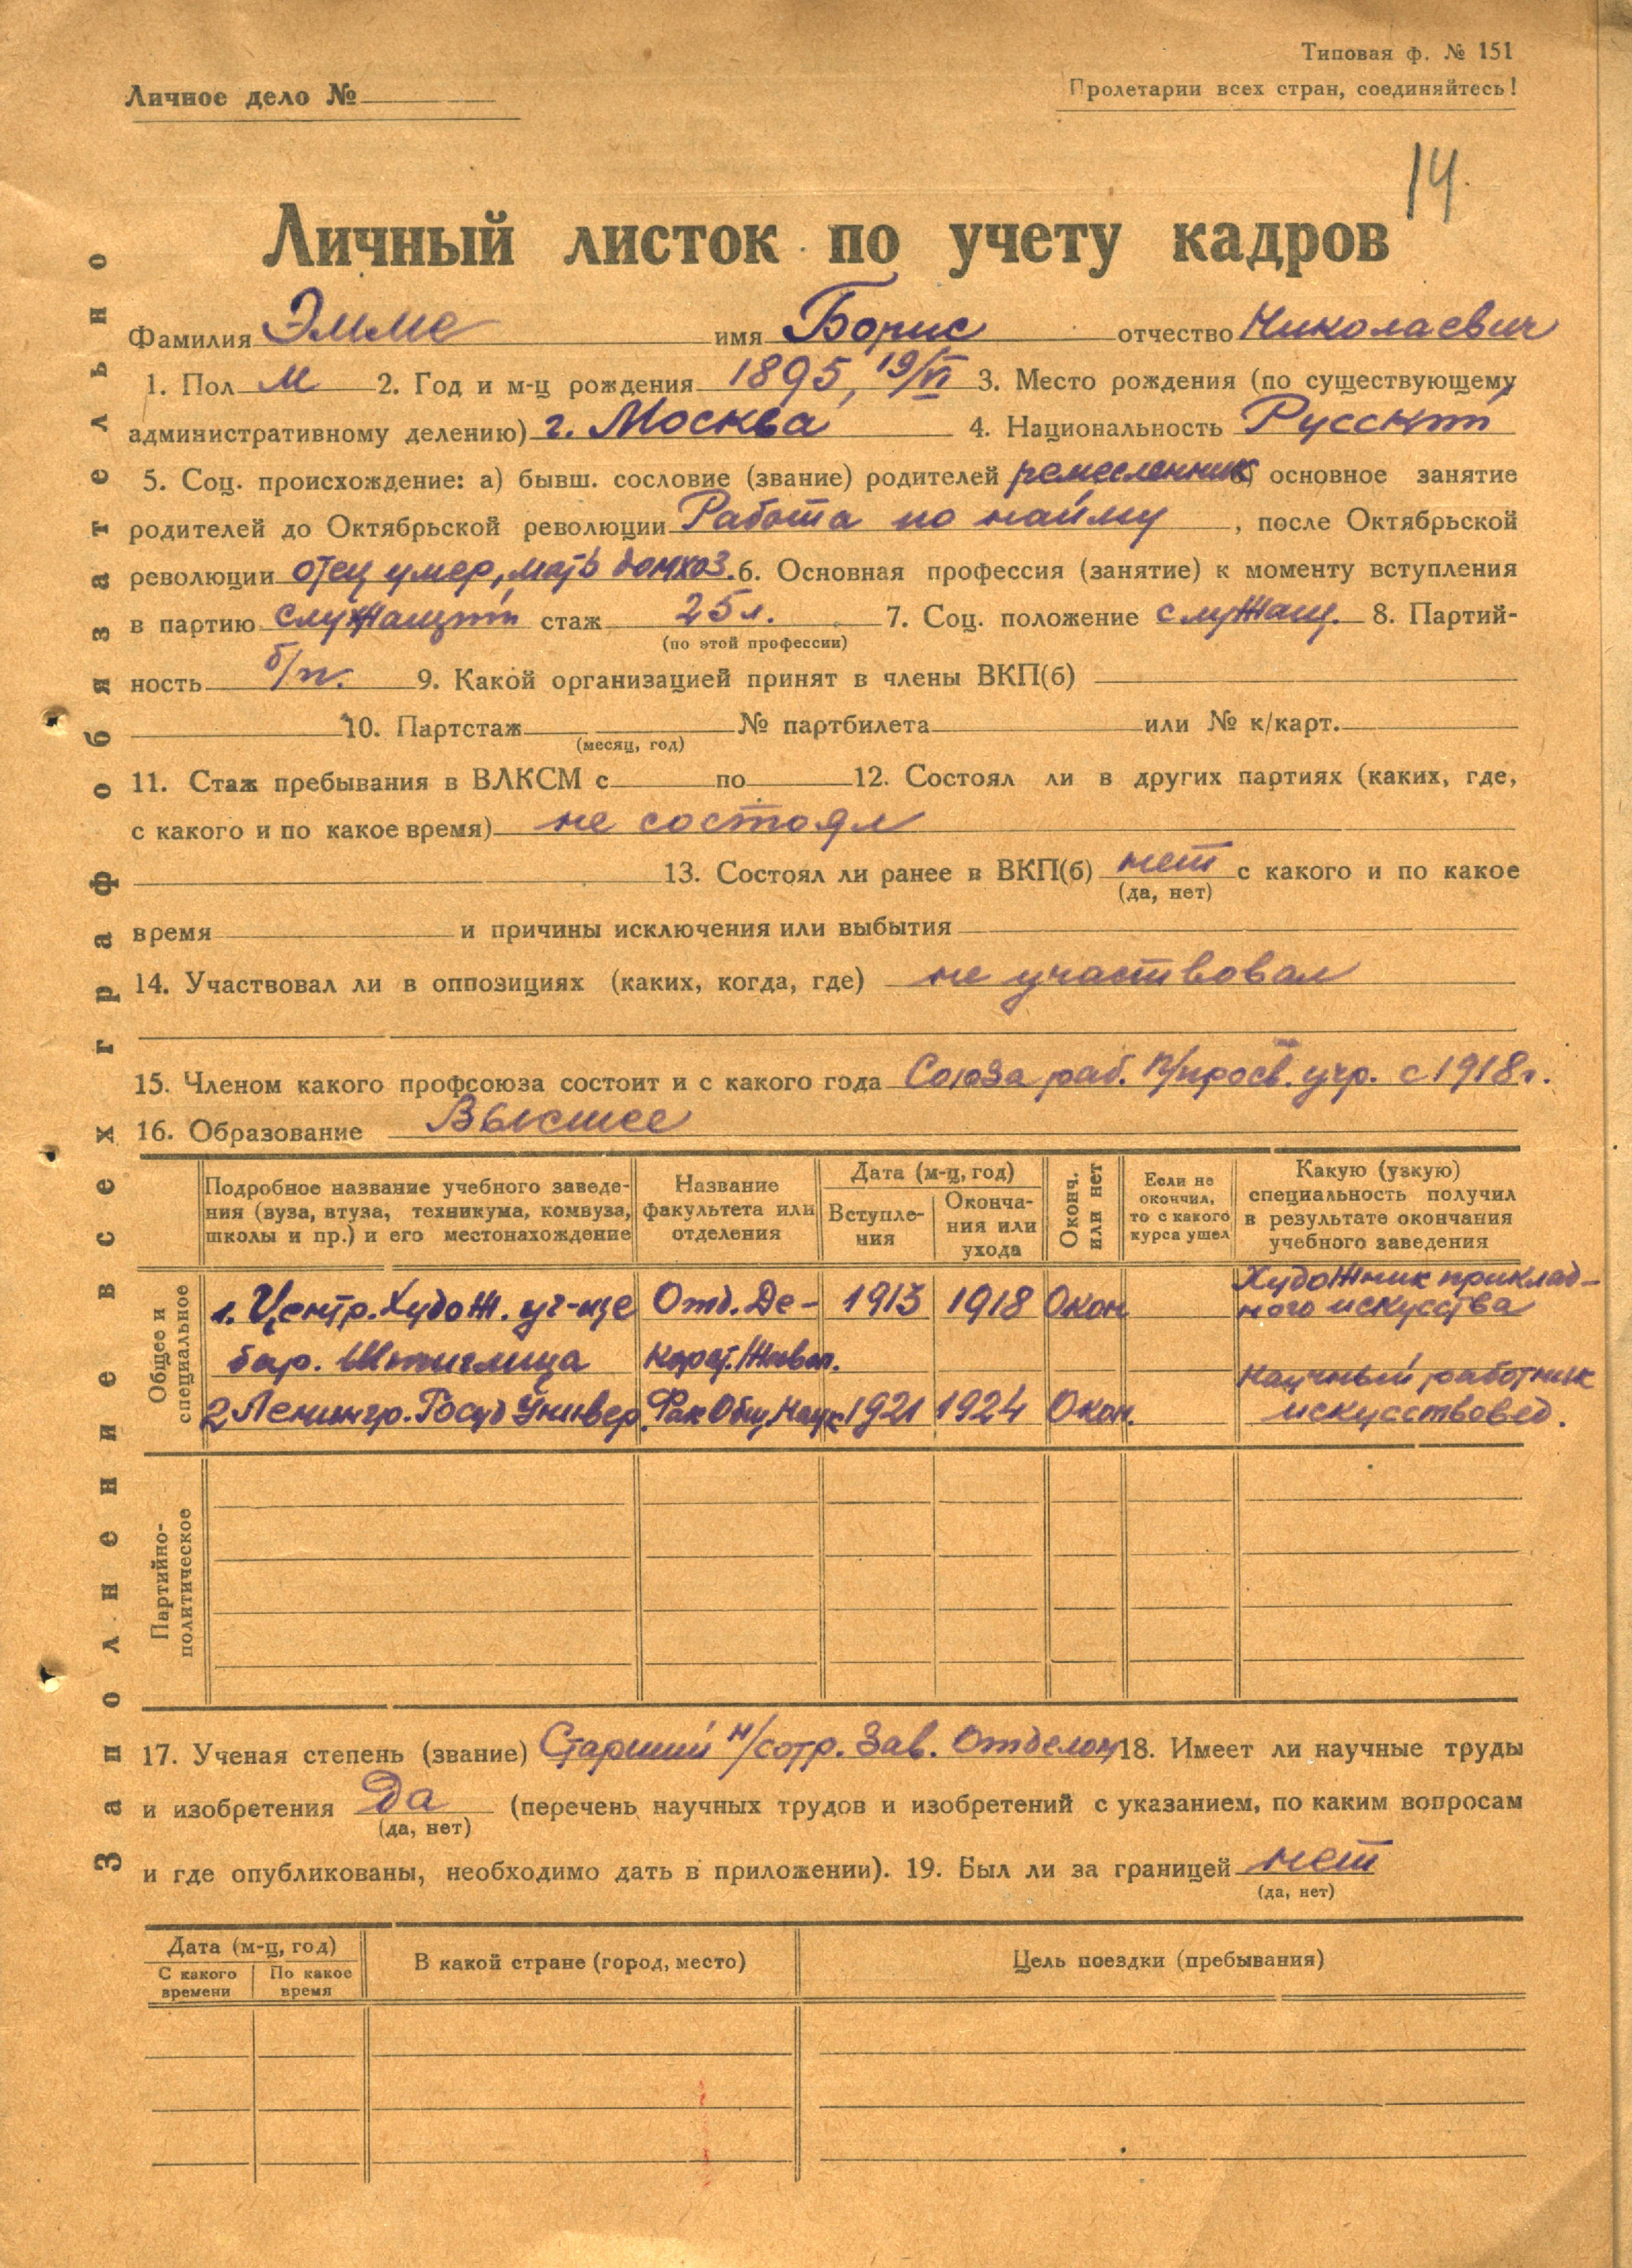 Типовая ф. № 151
Личное дело №
Пролетарии всех стран, соединяйтесь!
14
Личный листок по учету кадров
Фамилия Эмме имя Борис отчество Николаевич
1. Пол М 2. Год и м-ц рождения 1895, 19/VI 3. Место рождения (по существующему
административному делению) г. Москва 4. Национальность Русский
5. Соц. происхождение: а) бывш. сословие (звание) родителей ремесленник б) основное занятие
родителей до Октябрьской революции Работа по найму, после Октябрьской
революции отец умер, мать домхоз. 6. Основная профессия (занятие) к моменту вступления
в партию служащий стаж 25 л. 7. Соц. положение служащ. 8. Партий-
(по этой профессии)
ность б/п. 9. Какой организацией принят в члены ВКП(б)
10. Партстаж № партбилета или № к/карт.
(месяц, год)
11. Стаж пребывания в ВЛКСМ с по 12. Состоял ли в других партиях (каких, где,
с какого и по какое время) не состоял
13. Состоял ли ранее в ВКП(б) нет с какого и по какое
(да, нет)
время и причины исключения или выбытия
14. Участвовал ли в оппозициях (каких, когда, где) не участвовал
15. Членом какого профсоюза состоит и с какого года Союза раб. п/просв. учр. с 1918 г.
16. Образование Высшее
Подробное название учебного заведе-
ния (вуза, втуза, техникума, комвуза,
школы и пр.) и его местонахождение
Название
факультета или
отделения
Дата (м-ц, год)
Вступле-
ния
Оконча-
ния или
ухода
Оконч.
или нет
Если не
окончил,
то с какого
курса ушел
Какую (узкую)
специальность получил
в результате окончания
учебного заведения
Общее и
специальное
1. Центр. Худож. уч-ще Отд. Де- 1913 1918 Окон Художник приклад-
ного искусства
бар. Штиглица корат. Живоп.
Научный работник
2 Ленингр. Госуд Универ. Фак Общ. Наук 1921 1924 Окон. искусствовед.
Партийно-
политическое
17. Ученая степень (звание) Старший н/сотр. Зав. Отделом 18. Имеет ли научные труды
и изобретения Да (перечень научных трудов и изобретений с указанием, по каким вопросам
(да, нет)
и где опубликованы, необходимо дать в приложении). 19. Был ли за границей нет
(да, нет)
Дата (м-ц, год)
С какого
времени
По какое
время
В какой стране (город, место)
Цель поездки (пребывания)
Заполнение всех граф обязательно